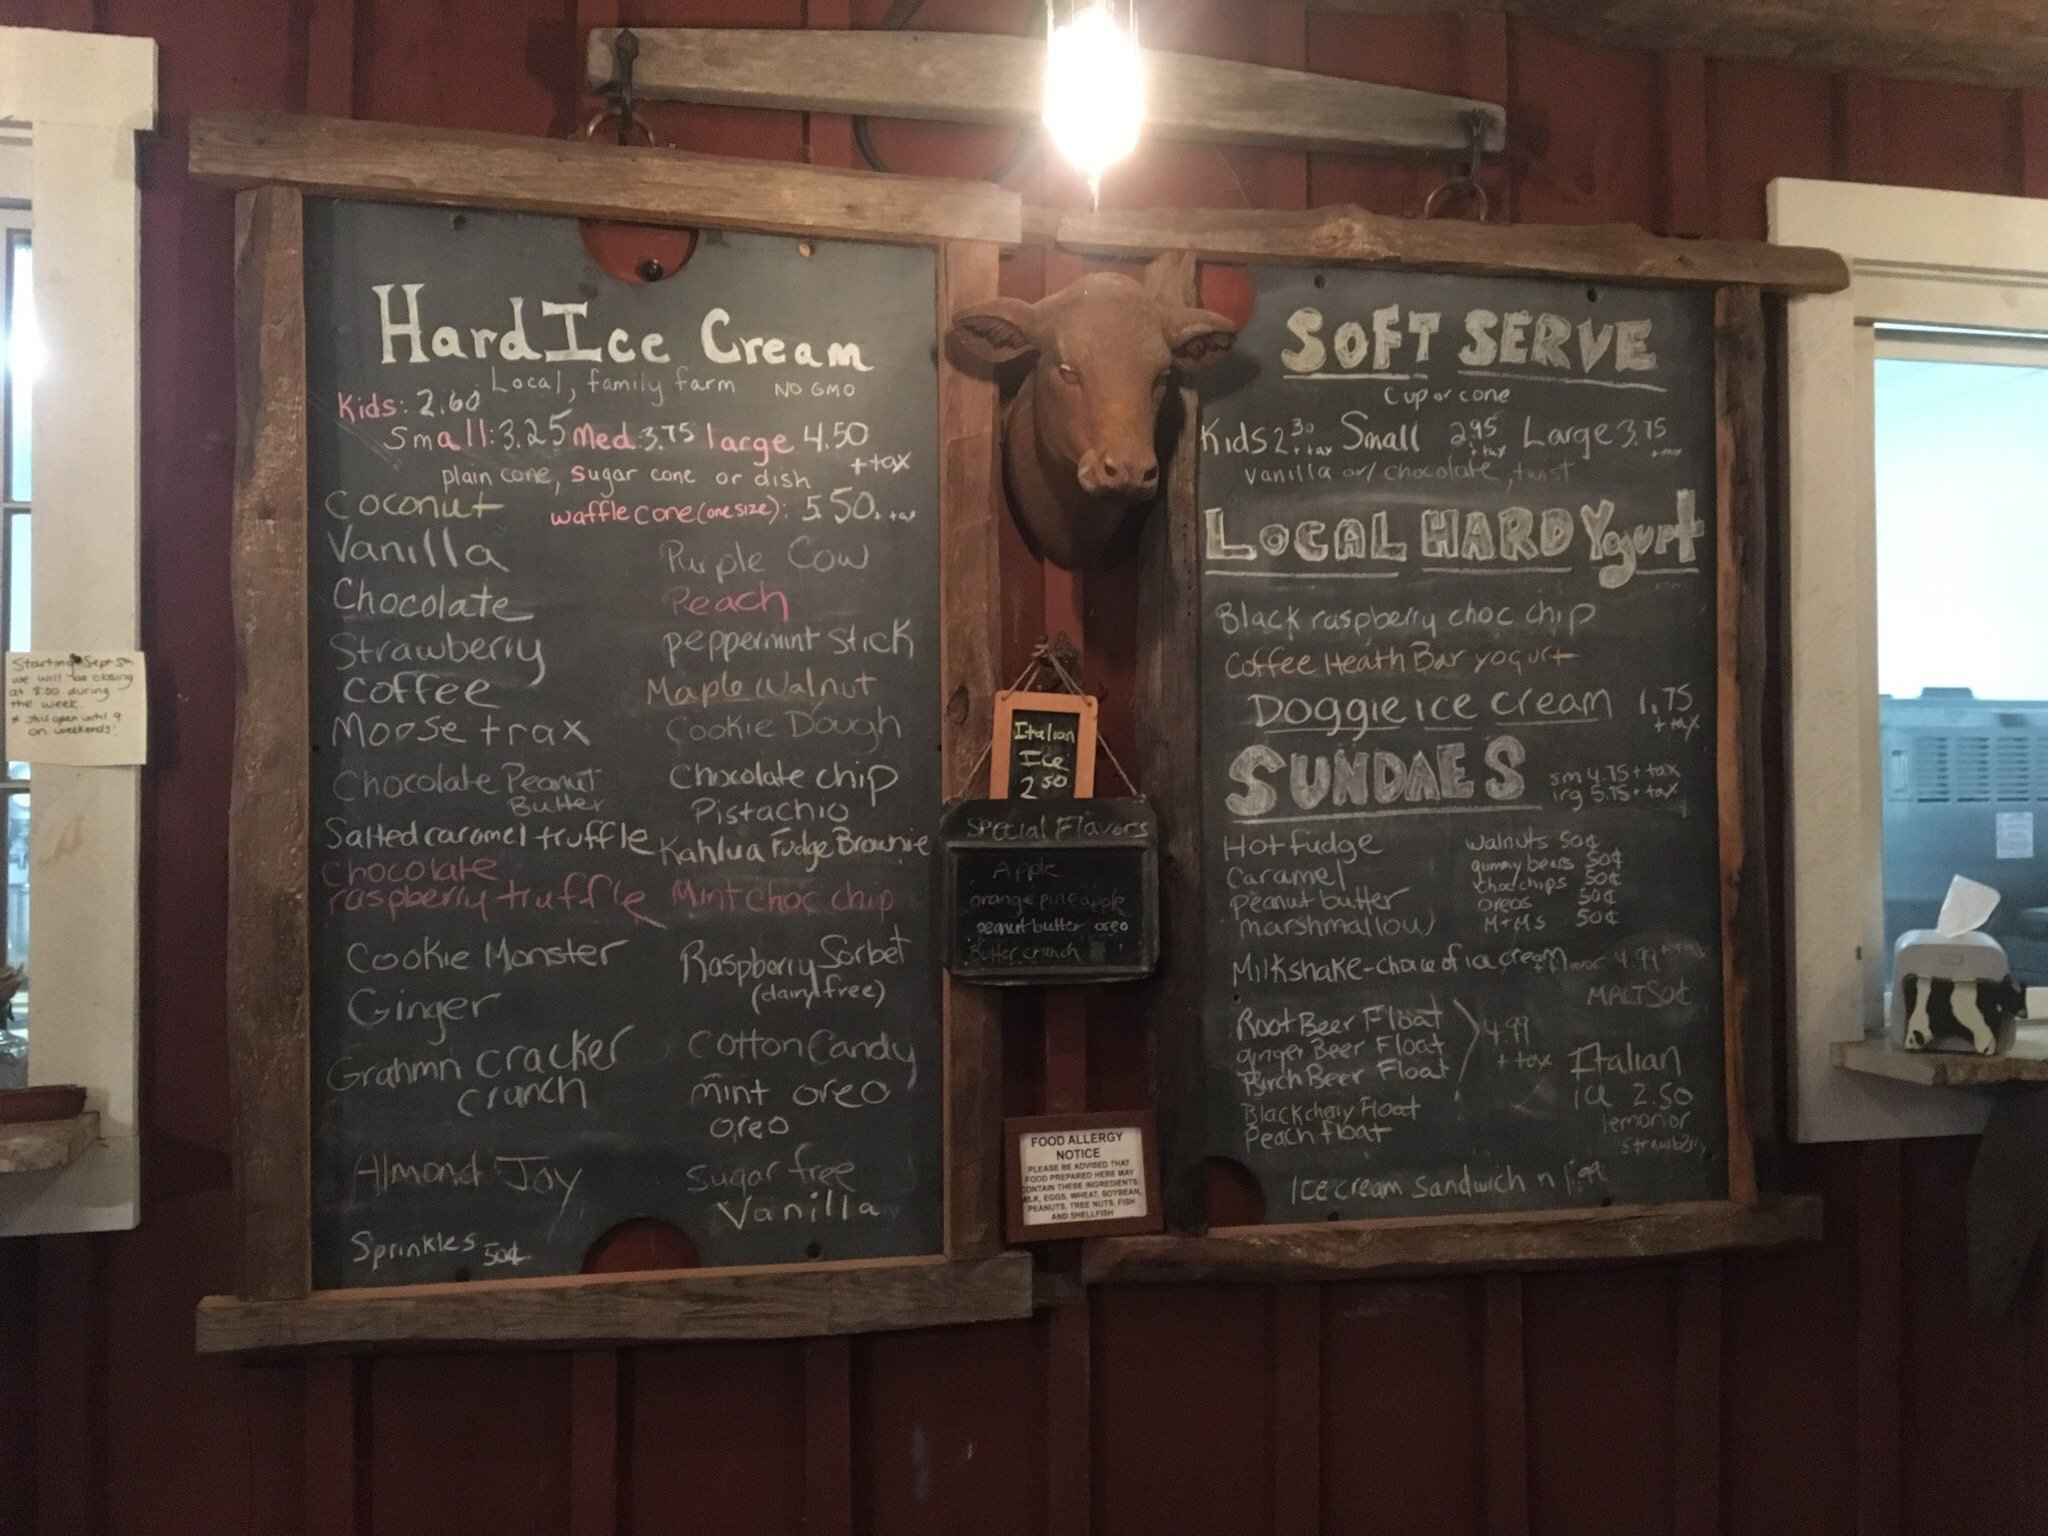 Hard Ice Cream
Local, family farm NO GMO
Kids: 2.60
Small: 3.25 Med. 3.75 large 4.50
+ tax
plain cone, sugar cone or dish
Coconut
waffle cone (one size): 5.50 + tax
Vanilla
Chocolate
Strawberry
Coffee
Moose trax
Chocolate Peanut
Butter
Salted caramel truffle
Chocolate
raspberry truffle
Cookie Monster
Ginger
Grahmn cracker
crunch
Almond Joy
Sprinkles 50¢
Purple Cow
Peach
peppermint stick
Maple Walnut
Cookie Dough
Chocolate chip
Pistachio
Kahlua Fudge Brownie
Mint Choc chip
Raspberry Sorbet
(dairy free)
Cotton Candy
mint oreo
oreo
Sugar free
Vanilla
Italian
Ice
2.50
Special Flavors
Apple
orange pineapple
peanut butter oreo
Butter crunch
FOOD ALLERGY
NOTICE
PLEASE BE ADVISED THAT
FOOD PREPARED HERE MAY
CONTAIN THESE INGREDIENTS:
MILK, EGGS, WHEAT, SOYBEAN,
PEANUTS, TREE NUTS, FISH
AND SHELLFISH
SOFT SERVE
Cup or cone
Kids 2.30 + tax Small 2.95 + tax Large 3.75 + tax
Vanilla or/ chocolate, twist
LOCAL HARD Yogurt
Black raspberry choc chip
Coffee Heath Bar yogurt
Doggie ice cream 1.75
+ tax
SUNDAES
sm 4.75 + tax
lrg 5.75 + tax
Hot fudge
Caramel
Peanut butter
marshmallow
walnuts 50¢
gummy bears 50¢
choc chips 50¢
oreos 50¢
M+Ms 50¢
Milkshake - choice of ice cream 4.99
MALT 50¢
Root Beer Float
ginger Beer Float
Birch Beer Float
4.99
+ tax
Black cherry Float
Peach float
Italian
ice 2.50
lemon or
Strawberry
Ice cream sandwich 1.99
Starting Sept 5th
we will be closing
at 8:00 during
the week.
* still open until 9
on weekends!